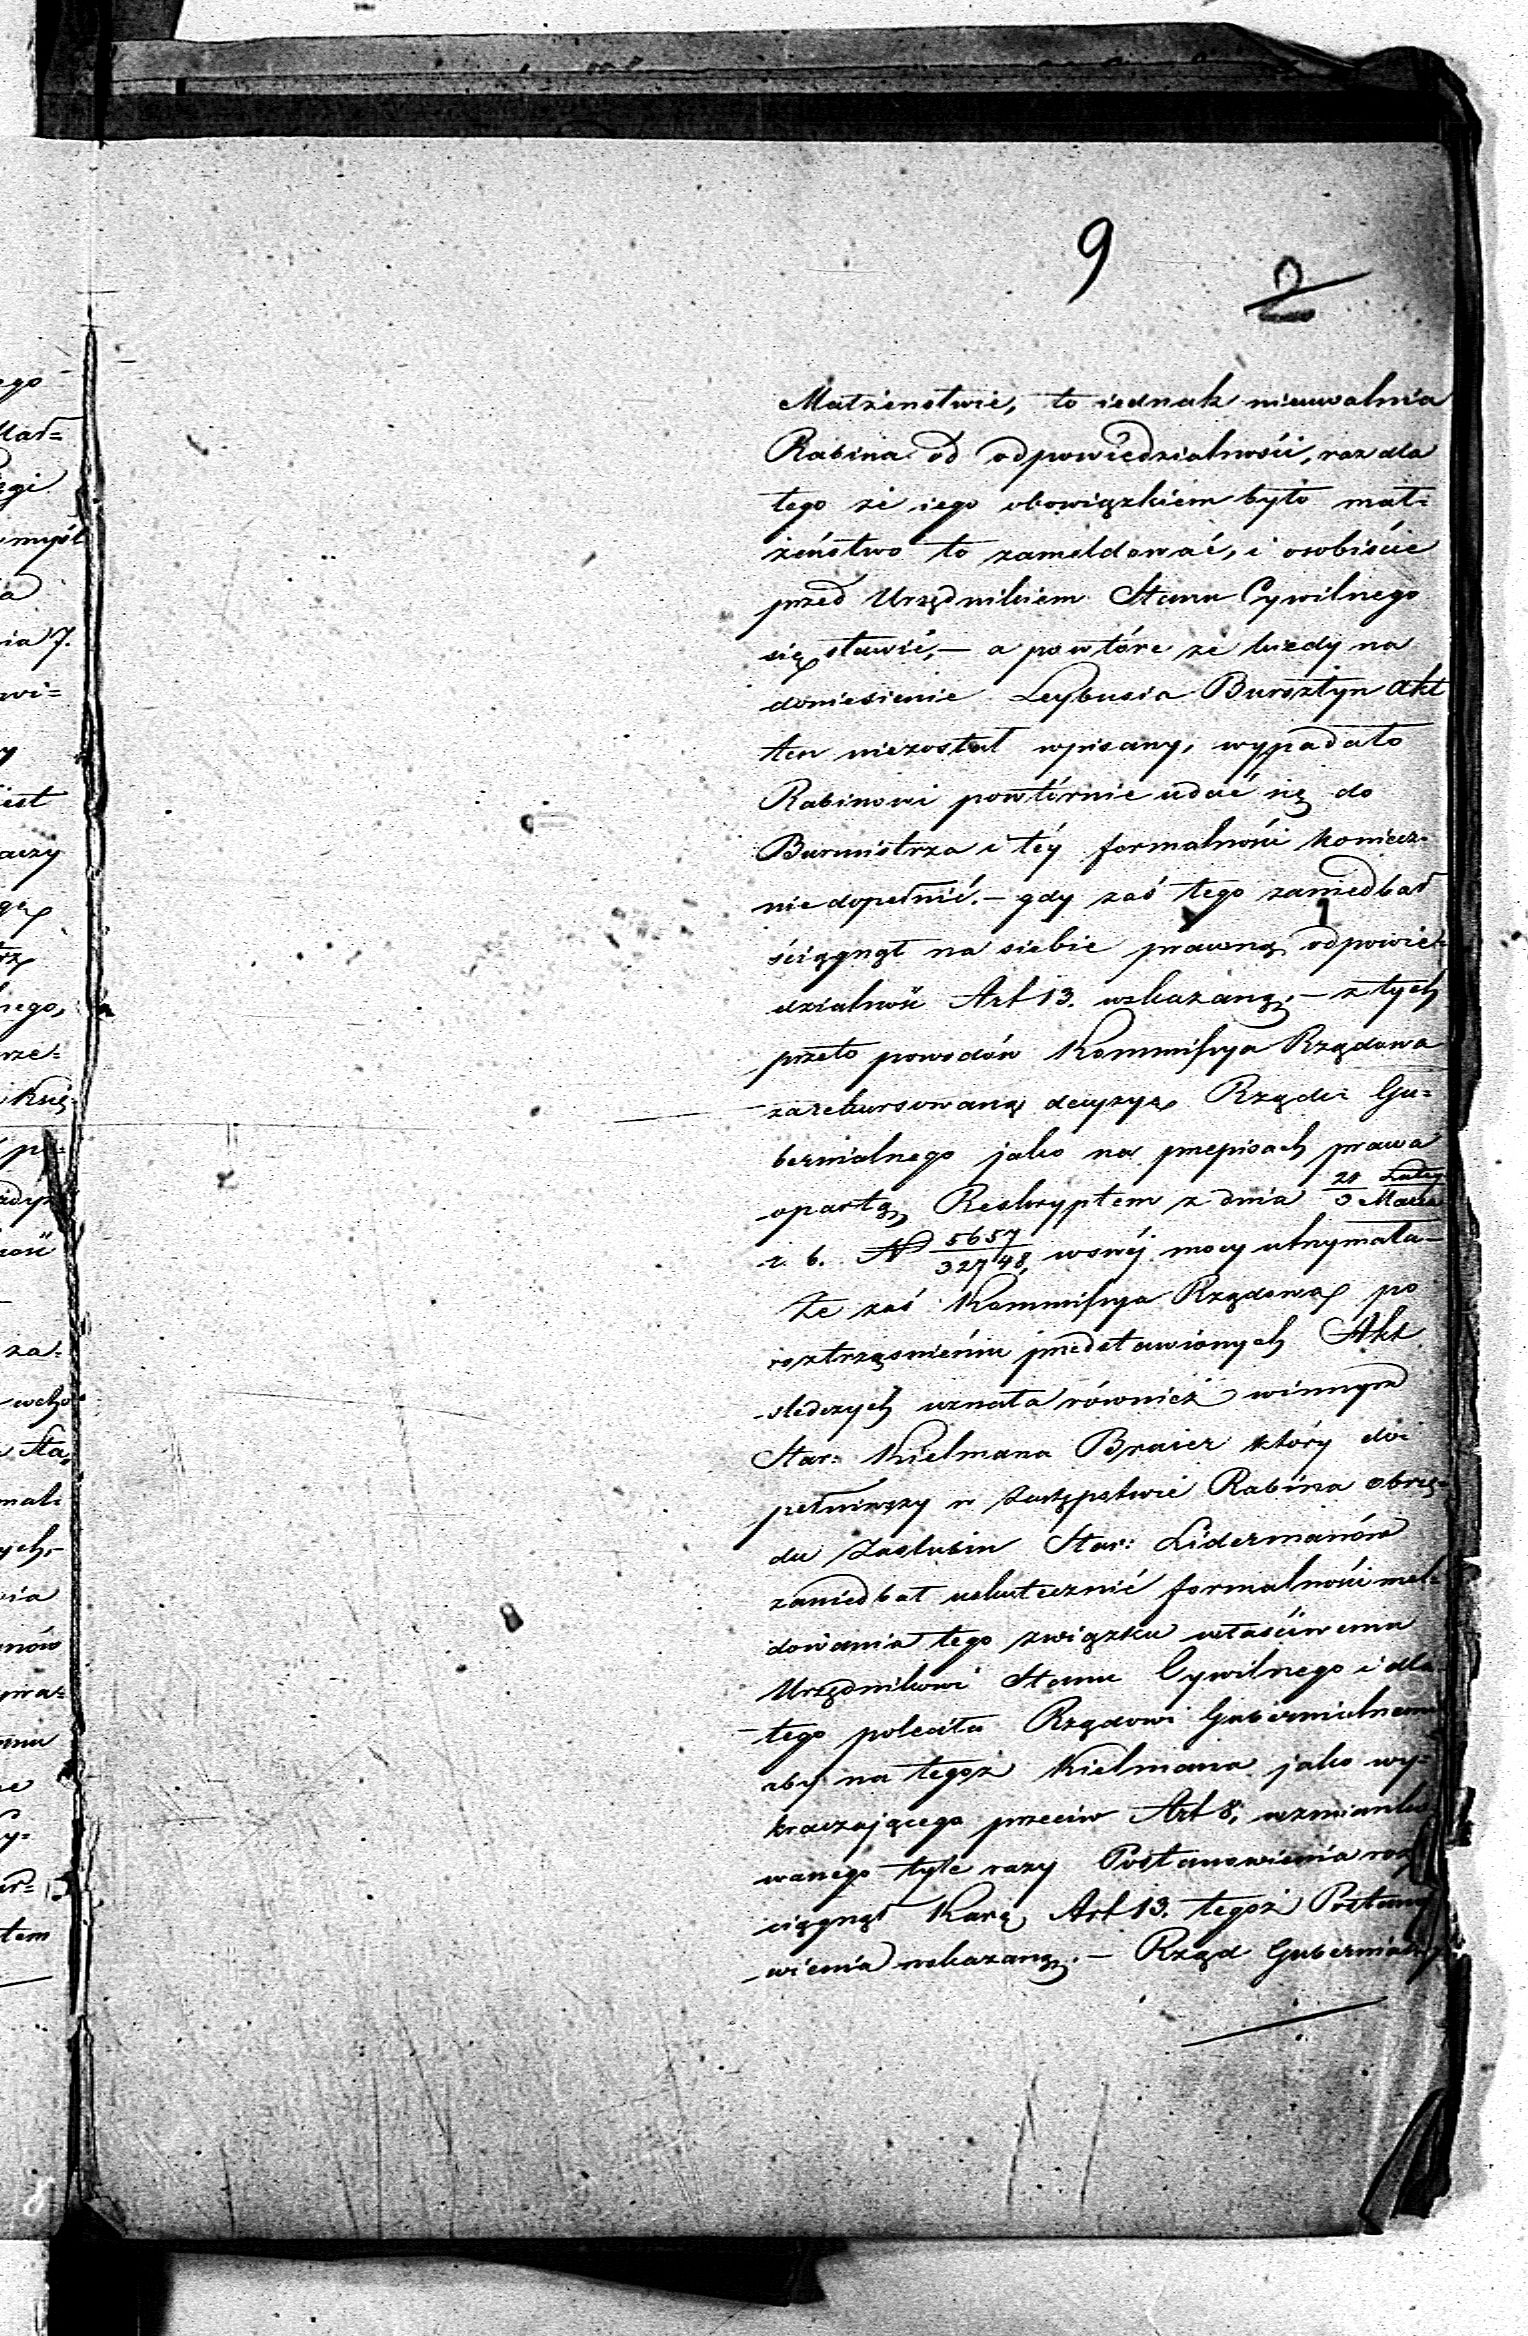 9
2
Małżeństwie, to iednak nieuwalnia
Rabina od odpowiedzialności, raz dla
tego że iego obowiązkiem było mał-
żeństwo to zameldować, i osobiście
przed Urzędnikiem Stanu Cywilnego
się stawić, — a powtóre że kiedy na
doniesienie Leybusia Bursztyn akt
ten niezostał wpisany, wypadało
Rabinowi powtórnie udać się do
Burmistrza i téy formalności koniecz-
nie dopełnić. — gdy zaś tego zaniedbał
ściągnął na siebie prawną odpowie-
dzialność Art 13. wskazaną. — z tych
przeto powodów Kommissya Rządowa
zarekursowaną decyzyę Rządu Gu-
bernialnego jako na przepisach prawa
opartą, Reskryptem z dnia Lutego / 3 Marca
r. b. N 5657/32748, wswéj mocy utrzymała —
Że zaś Kommissya Rządowa po
roztrząśnieniu przedstawionych Akt
śledczych uznała również winnym
Star: Kielmana Braier który do-
pełniwszy w Zastępstwie Rabina obrzę-
du Zaślubin Star: Lidermanów
zaniedbał uskutecznić formalności mel-
dowania tego związku właściwemu
Urzędnikowi Stanu Cywilnego i dla
tego poleciła Rządowi Gubernialnemu
aby na tegoż Kielmana jako wy-
kraczającego przeciw Art 8, wzmianko-
wanego tyle razy Postanowienia roz-
ciągnął Karę Art 13. tegoż Postano-
wienia wskazaną. — Rząd Gubernialny
ego
Mał-
ięgi
myśl
a
nia 7.
wi-
y
iest
aczy
nego,
rze-
Księ-
po-
za-
Sta
mał-
ych,—
nia
nów
pra-
y-
tem
8